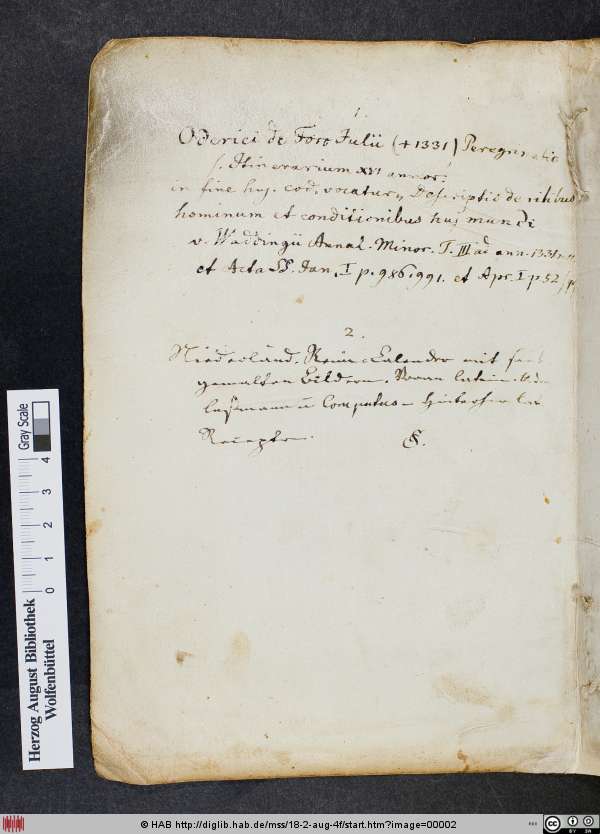 1.
Oderici de Foro Julii (+ 1331) Peregrinatio
s. Itinerarium XVI annor.
in fine huj. cod. vocatur, Descriptio de ritibus
hominum et conditionibus huj mundi
v. Waddingii Annal. Minor. T. III ad ann. 1331
et Acta SS. Jan. I p. 986. 991. et Apr. I p. 52
2.
Niederländ. Reim-Calender mit
gemalten Bildern. Voran latein.
Computus
Recepte.
Gray Scale
0 1 2 3 4
Herzog August Bibliothek
Wolfenbüttel
© HAB http://diglib.hab.de/mss/18-2-aug-4f/start.htm?image=00002
cc BY SA